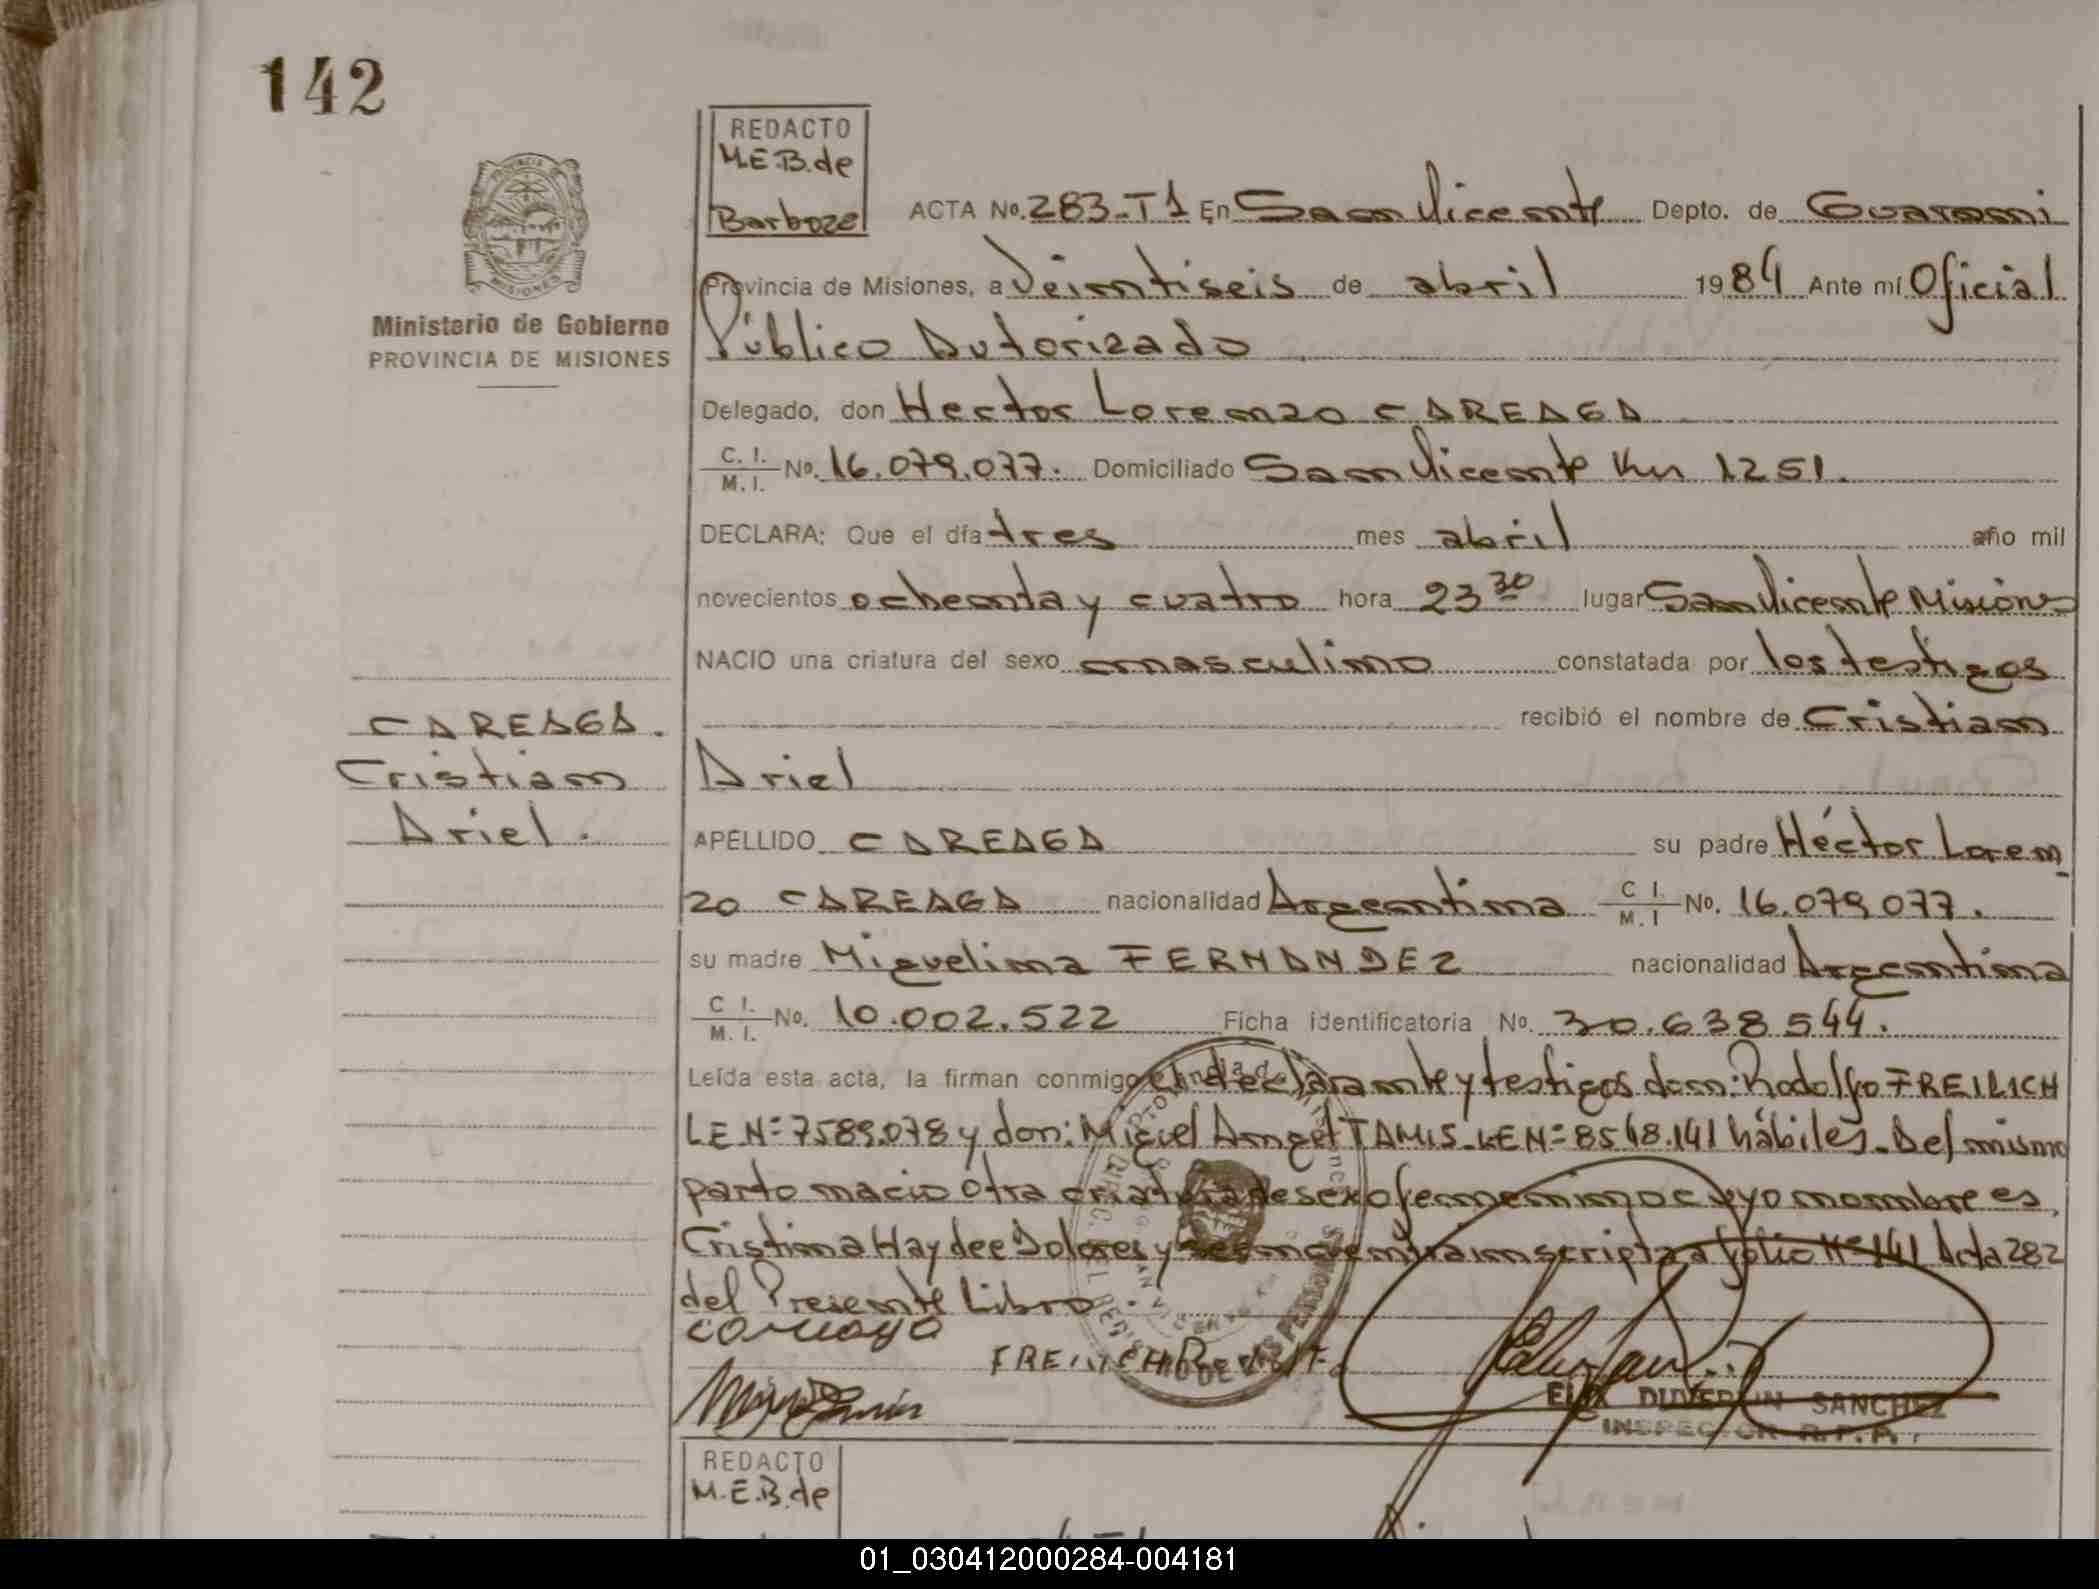 142
PROVINCIA
MISIONES
Ministerio de Gobierno
PROVINCIA DE MISIONES
REDACTO
M.E.B. de
Barboza
ACTA No. 283-T1 En San Vicente Depto. de Guarani
Provincia de Misiones, a Veintiseis de abril 1984 Ante mí Oficial
Público Autorizado
Delegado, don Hector Lorenzo CAREAGA
C. I. / M. I. No. 16.079.077. Domiciliado San Vicente Km 1251.
DECLARA: Que el día tres mes abril año mil
novecientos ochenta y cuatro hora 23 30 lugar San Vicente Misiones
NACIO una criatura del sexo masculino constatada por los testigos
recibió el nombre de Cristian
Ariel
CAREAGA.
Cristian
Ariel.
APELLIDO CAREAGA su padre Héctor Loren
zo CAREAGA nacionalidad Argentina C I. / M. I No. 16.079.077.
su madre Miguelina FERNANDEZ nacionalidad Argentina
C I. / M. I. No. 10.002.522 Ficha identificatoria No. 30.638544.
Leída esta acta, la firman conmigo el declarante y testigos don: Rodolfo FREILICH
LE Nº 7589.078 y don: Miguel Angel TAMIS - LE Nº 8548.141 hábiles. Del mismo
parto nacio otra criatura de sexo femenino cuyo nombre es
Cristina Haydee Dolores y se encuentra inscripta a folio Nº 141 Acta 282
del Presente Libro.
careaga
FREILICH
SANCHEZ
INSPECTOR R.P.P.
REDACTO
M.E.B. de
01_030412000284-004181